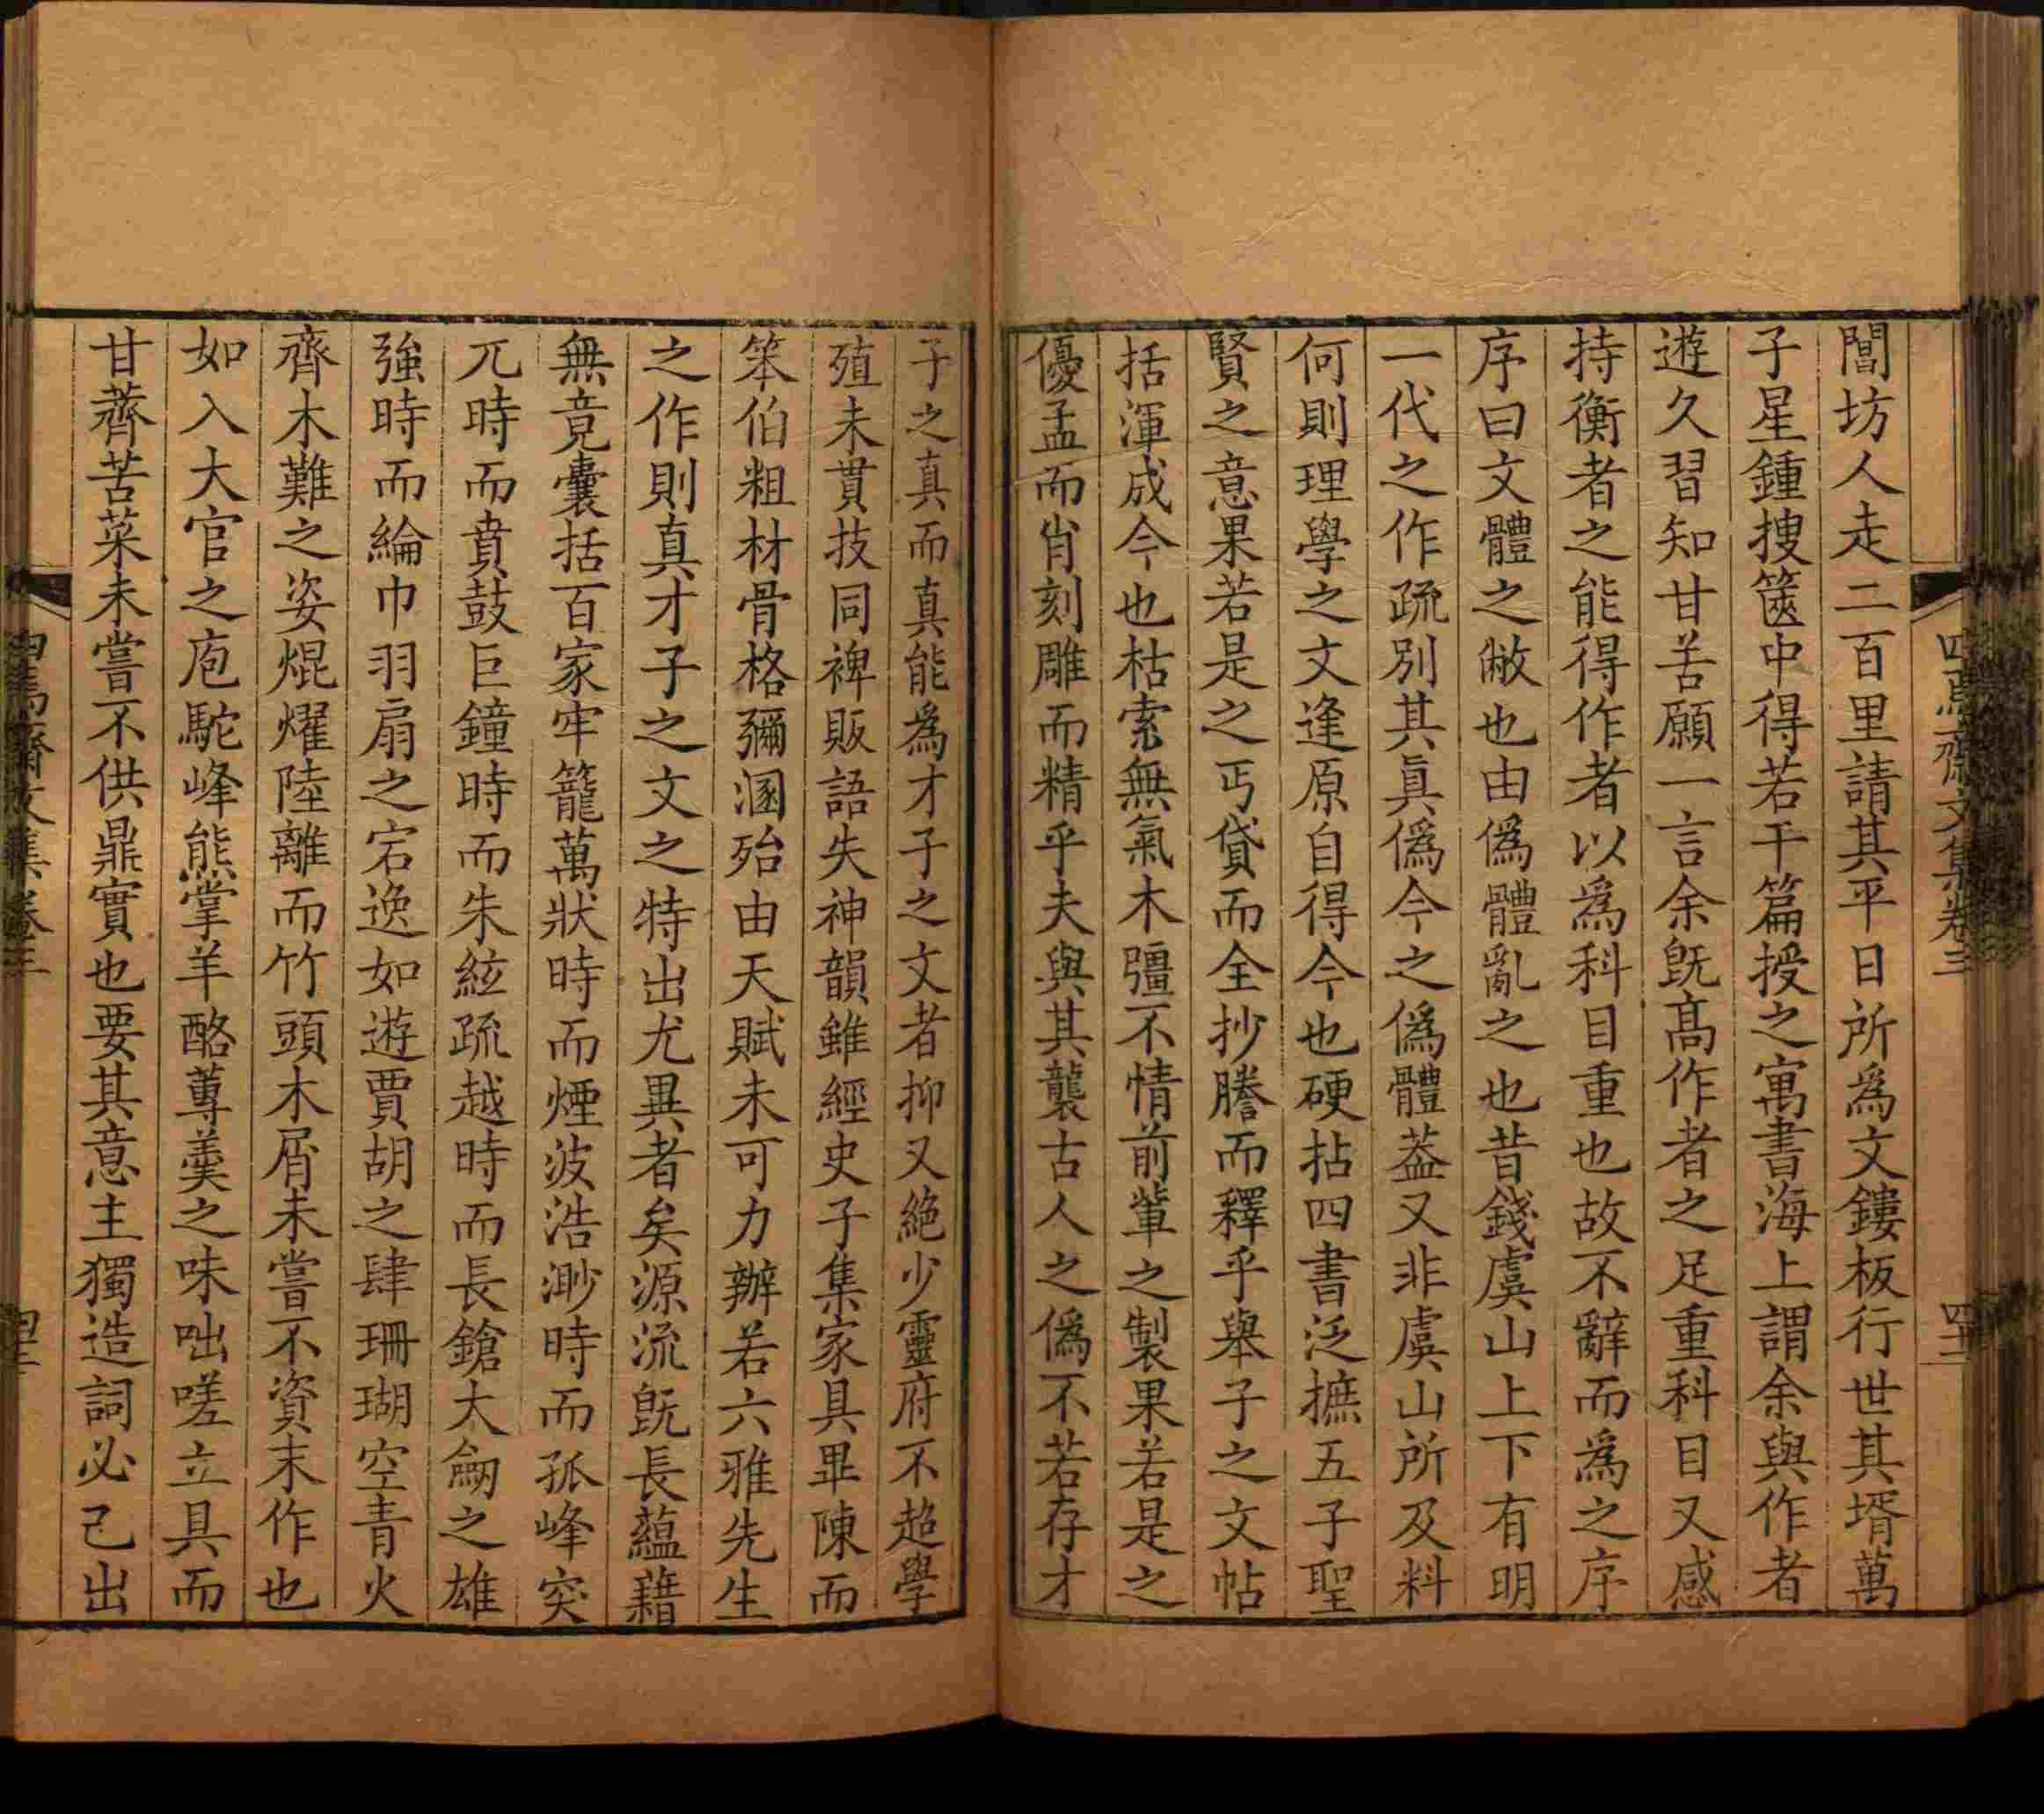 閶坊人走二百里請其平日所爲文鏤板行世其壻萬
子星鍾搜篋中得若干篇授之寓書海上謂余與作者
遊久習知甘苦願一言余旣髙作者之足重科目又感
持衡者之能得作者以爲科目重也故不辭而爲之序
序曰文體之敝也由僞體亂之也昔錢虞山上下有明
一代之作疏別其眞僞今之僞體葢又非虞山所及料
何則理學之文逢原自得今也硬拈四書泛摭五子聖
賢之意果若是之丐貸而全抄謄而釋乎舉子之文帖
括渾成今也枯索無氣木彊不情前輩之製果若是之
優孟而肖刻雕而精乎夫與其襲古人之僞不若存才
子之真而真能爲才子之文者抑又絶少靈府不超學
殖未貫技同裨販語失神韻雖經史子集家具畢陳而
笨伯粗材骨格彌溷殆由天賦未可力辦若六雅先生
之作則真才子之文之特出尤異者矣源流旣長蘊藉
無竟囊括百家牢籠萬狀時而煙波浩渺時而孤峰突
兀時而賁鼓巨鐘時而朱絃疏越時而長鎗大劒之雄
強時而綸巾羽扇之宕逸如遊賈胡之肆珊瑚空青火
齊木難之姿焜燿陸離而竹頭木屑未嘗不資末作也
如入大官之庖駝峰熊掌羊酪蓴羹之味咄嗟立具而
甘薺苦菜未嘗不供鼎實也要其意主獨造詞必己出
四焉齋文集卷三
四十二